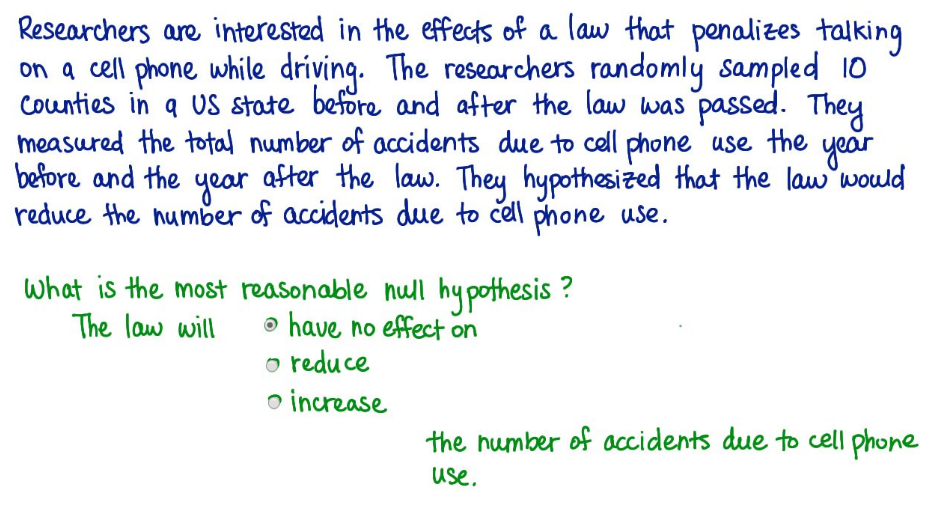 Researchers are interested in the effects of a law that penalizes talking
on a cell phone while driving. The researchers randomly sampled 10
Counties in a US state before and after the law was passed. They
measured the total number of accidents due to cell phone use the year
before and the year after the law. They hypothesized that the law would
reduce the number of accidents due to cell phone use.
What is the most reasonable null hypothesis?
The law will have no effect on
reduce
increase
the number of accidents due to cell phone
use.